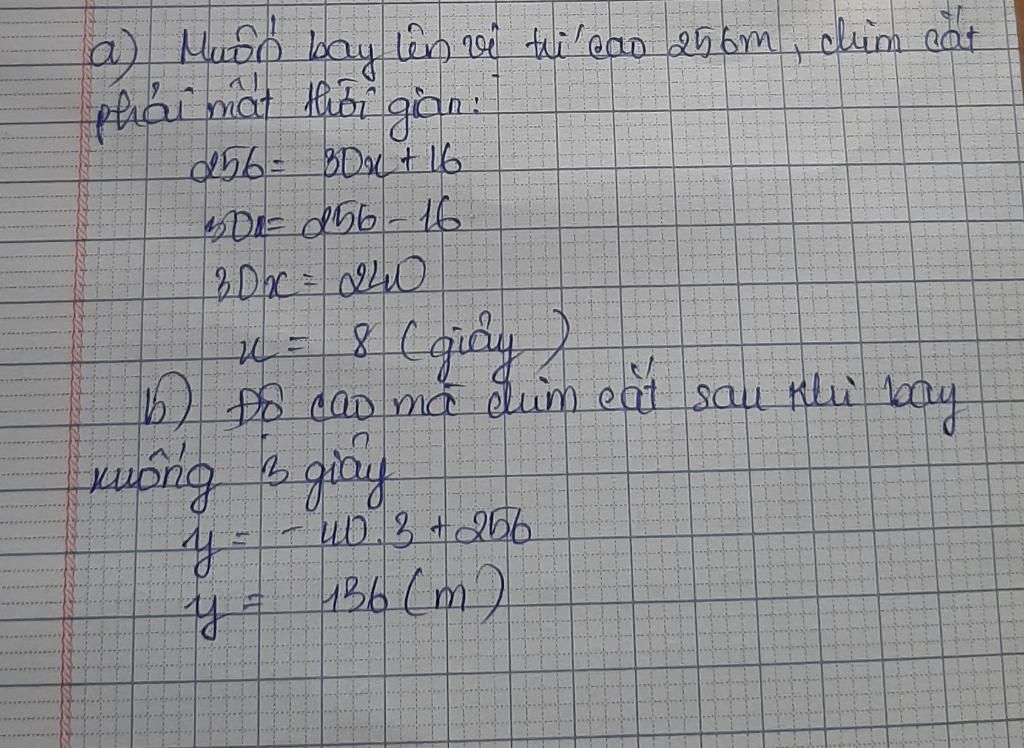 a) Muốn bay lên vị trí cao 256m, chim cắt
phải mất thời gian:
256 = 30x + 16
30x = 256 - 16
30x = 240
x = 8 (giây)
b) Độ cao mà chim cắt sau khi bay
xuống 3 giây
y = - 40.3 + 256
y = 136 (m)